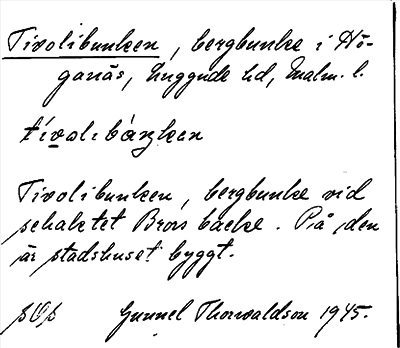 Tivolibunken, bergbunke i Hö-
ganäs, Luggude hd, Malm. l.
tívolibàŋken
Tivolibunken, bergbunke vid
schaktet Brors backe. På den
är stadshuset byggt.
Gunnel Thorwaldson 1945.